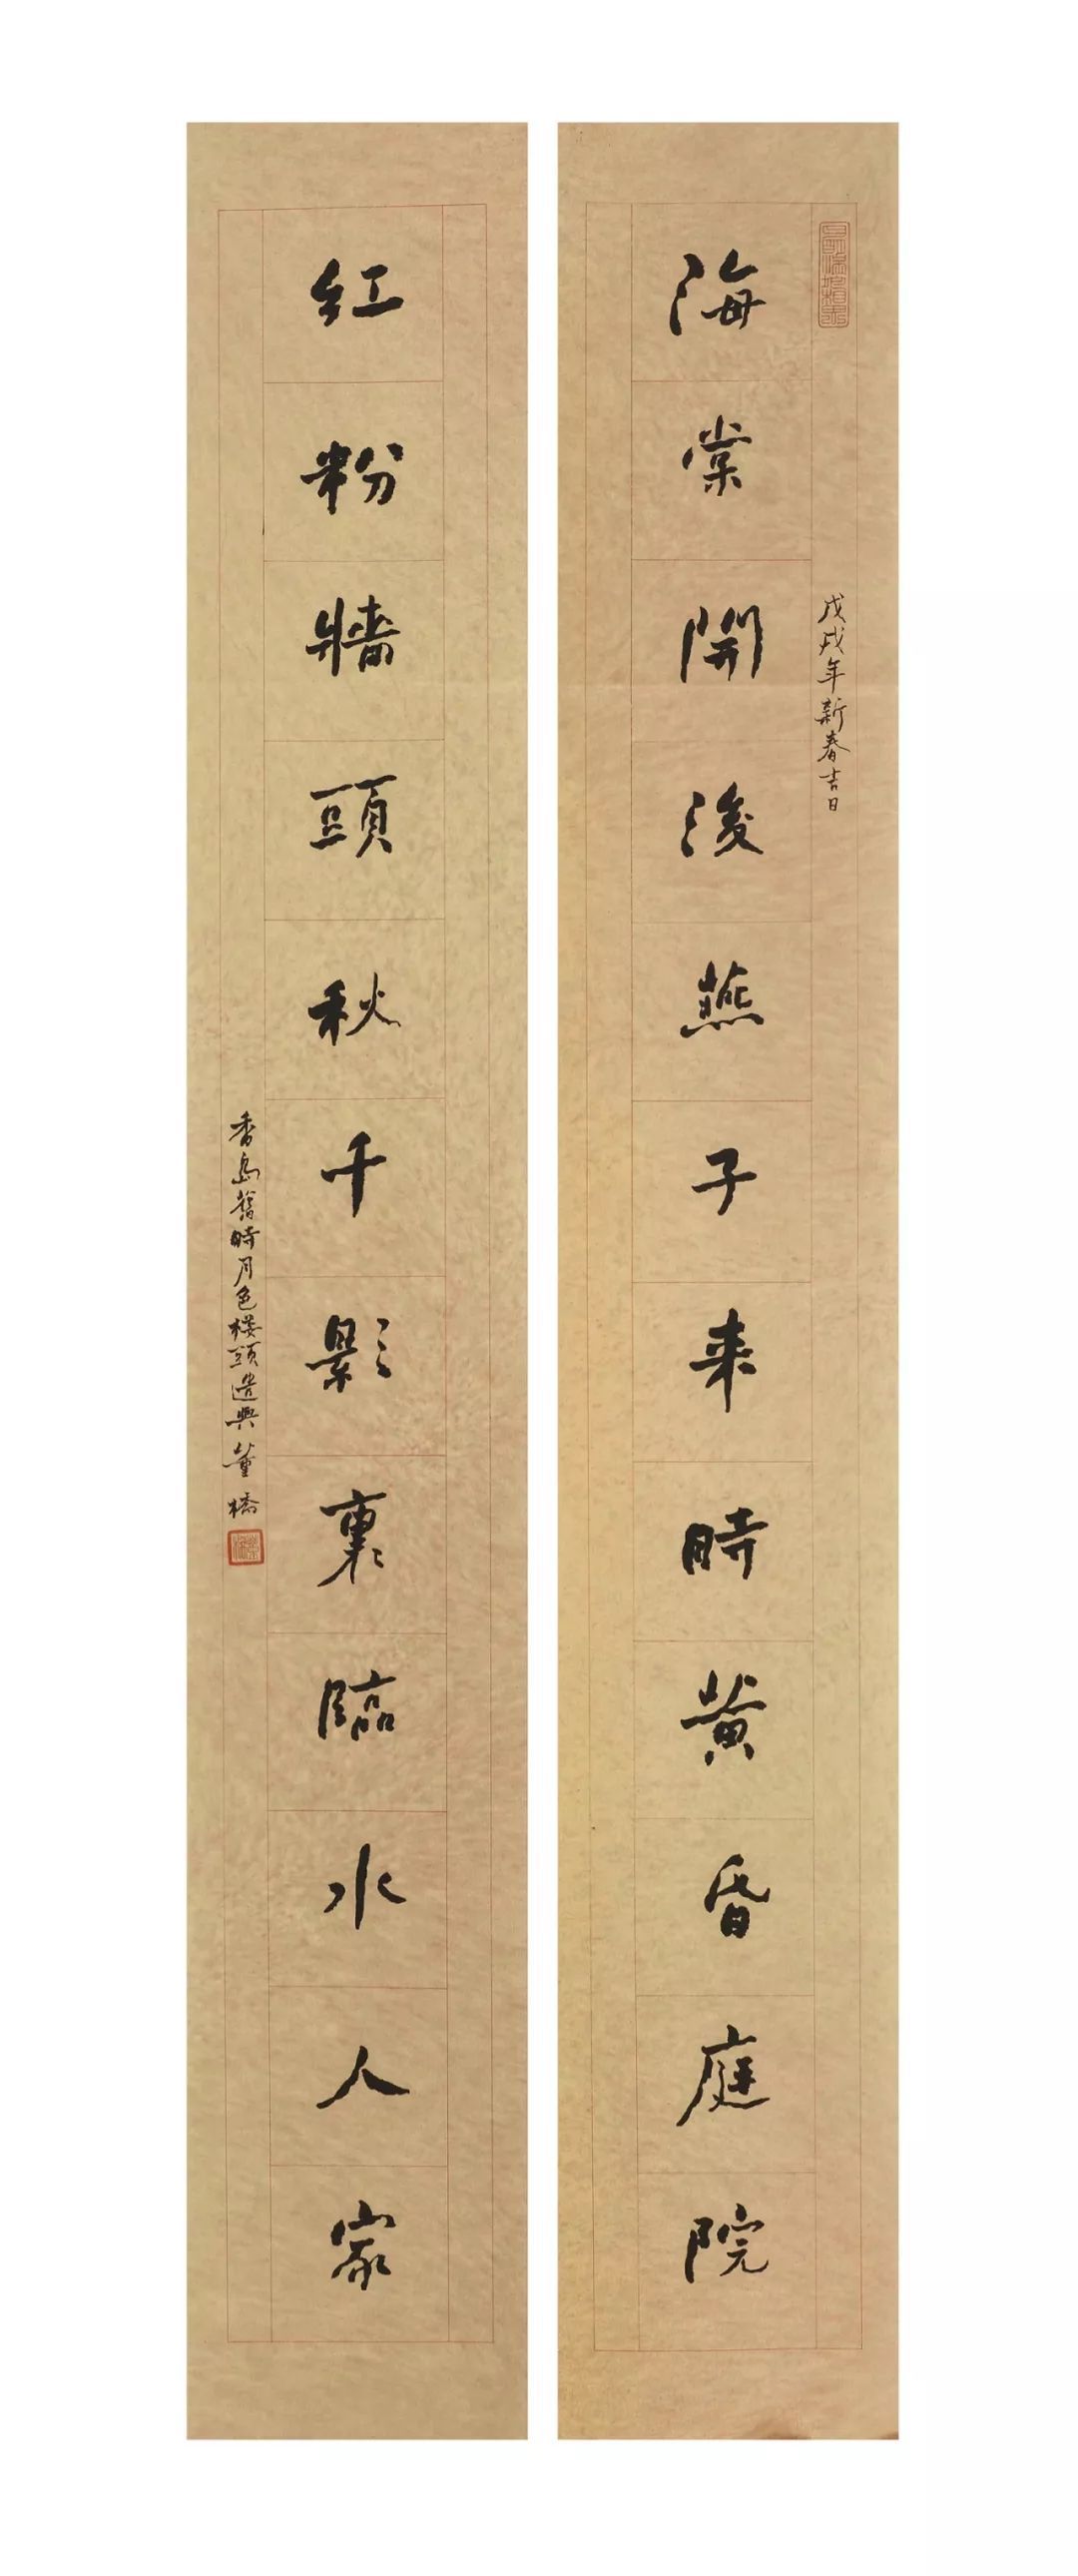 海棠開後燕子来時黄昏庭院
戊戌年新春吉日
红粉牆頭秋千影裏臨水人家
香島舊時月色楼頭遣興 董橋